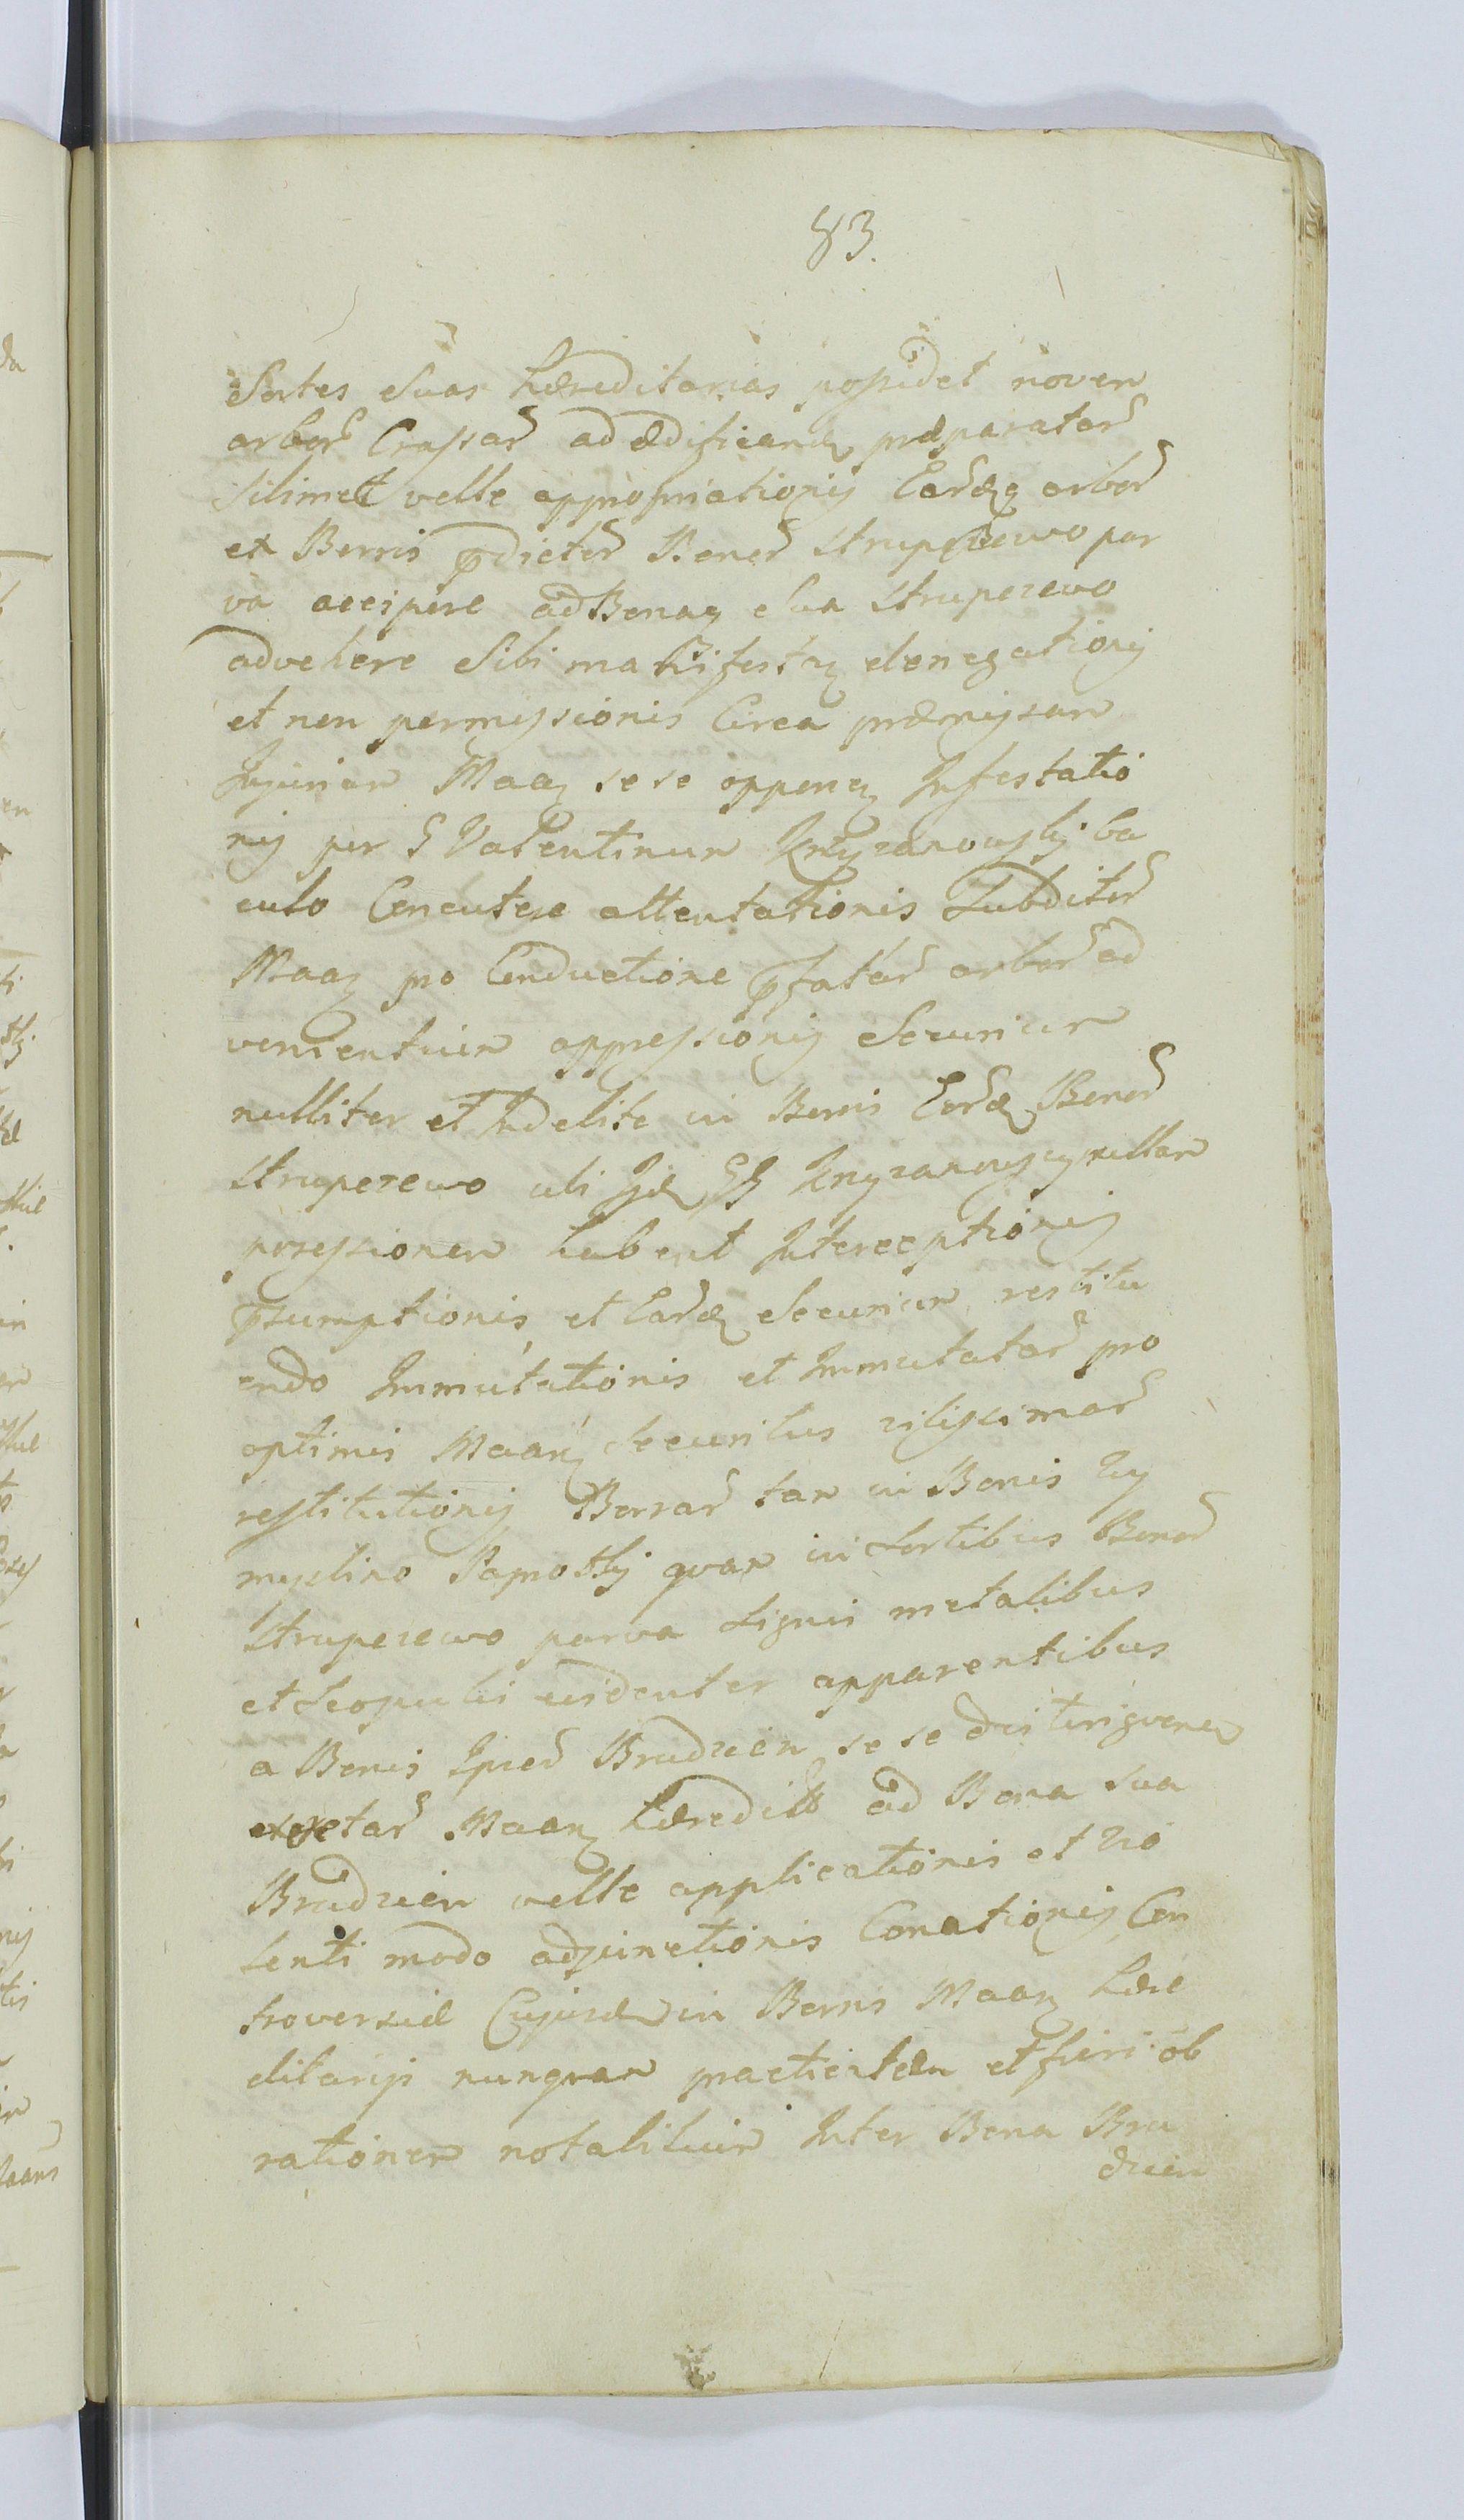 83.
Sortes Suas hæreditarias possidet novem
arbor Crassar ad ædificand præparatar
Sibimet velle appropriationis Eard arbor
ex Bonis prdictor Bonor Strupczewo par
va accipere ad Bona Sua Strupczewo
advehere Sibi manifest denegationis
et non permissionis Circa præmissam
Injuriam Maan sese opponen Infestatio
nis per G Valentinum Krzyzanowski ba
culo Concutere attentationis Subditor
Maan pro Conductione prfatar arbor ad
venientium oppressionis Securium
nulliter et Indebite in Bonis Eord Bonor
Strupczewo ubi Iid GG Krzyzanowscy nullam
possessionem habent Interceptionis
prsumptionis et Eard Securium restitu
endo Immutationis et Immutatar pro
optimis Maan Securibus vilissimar
restitutionis Borrar tam in Bonis
myslino Samothij quam in Sortibus Bonor
Strupczewo parva Signis metalibus
et Scopulis evidenter apparentibus
a Bonis Ipsed Brudzen sese distinguen
Maan hæredit ad Bona Sua
Brudzen velle applicationis et vio
lenti modo adjunctionis Conationis Con
troversiæ Cujusd in Bonis Maan hære
ditariis nunquam practicatæ et fieri ob
rationem notabilium Inter Bona Bru
dzen